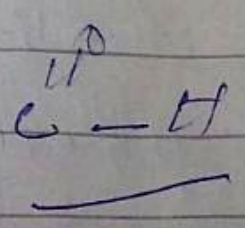 O
||
C – H